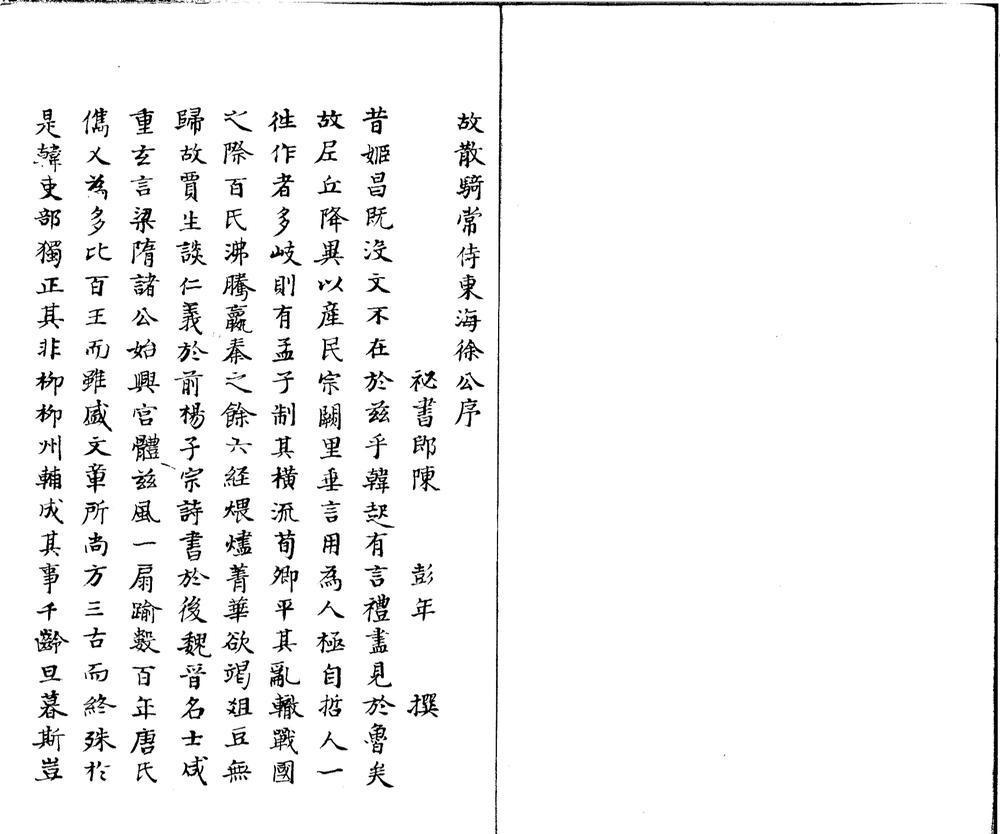 故散騎常侍東海徐公序
祕書郎陳 彭年 撰
昔姬昌既沒文不在於茲乎韓起有言禮盡見於魯矣
故尼丘降異以産民宗闕里垂言用為人極自哲人一
徃作者多岐則有孟子制其橫流荀卿平其亂轍戰國
之際百氏沸騰嬴秦之餘六経煨燼菁華欲竭俎豆無
歸故賈生談仁義於前楊子宗詩書於後魏晉名士咸
重玄言梁隋諸公始興宮體茲風一扇踰數百年唐氏
儁乂為多比百王而雖盛文章所尚方三古而終殊於
是韓吏部獨正其非柳柳州輔成其事千齡旦暮斯豈